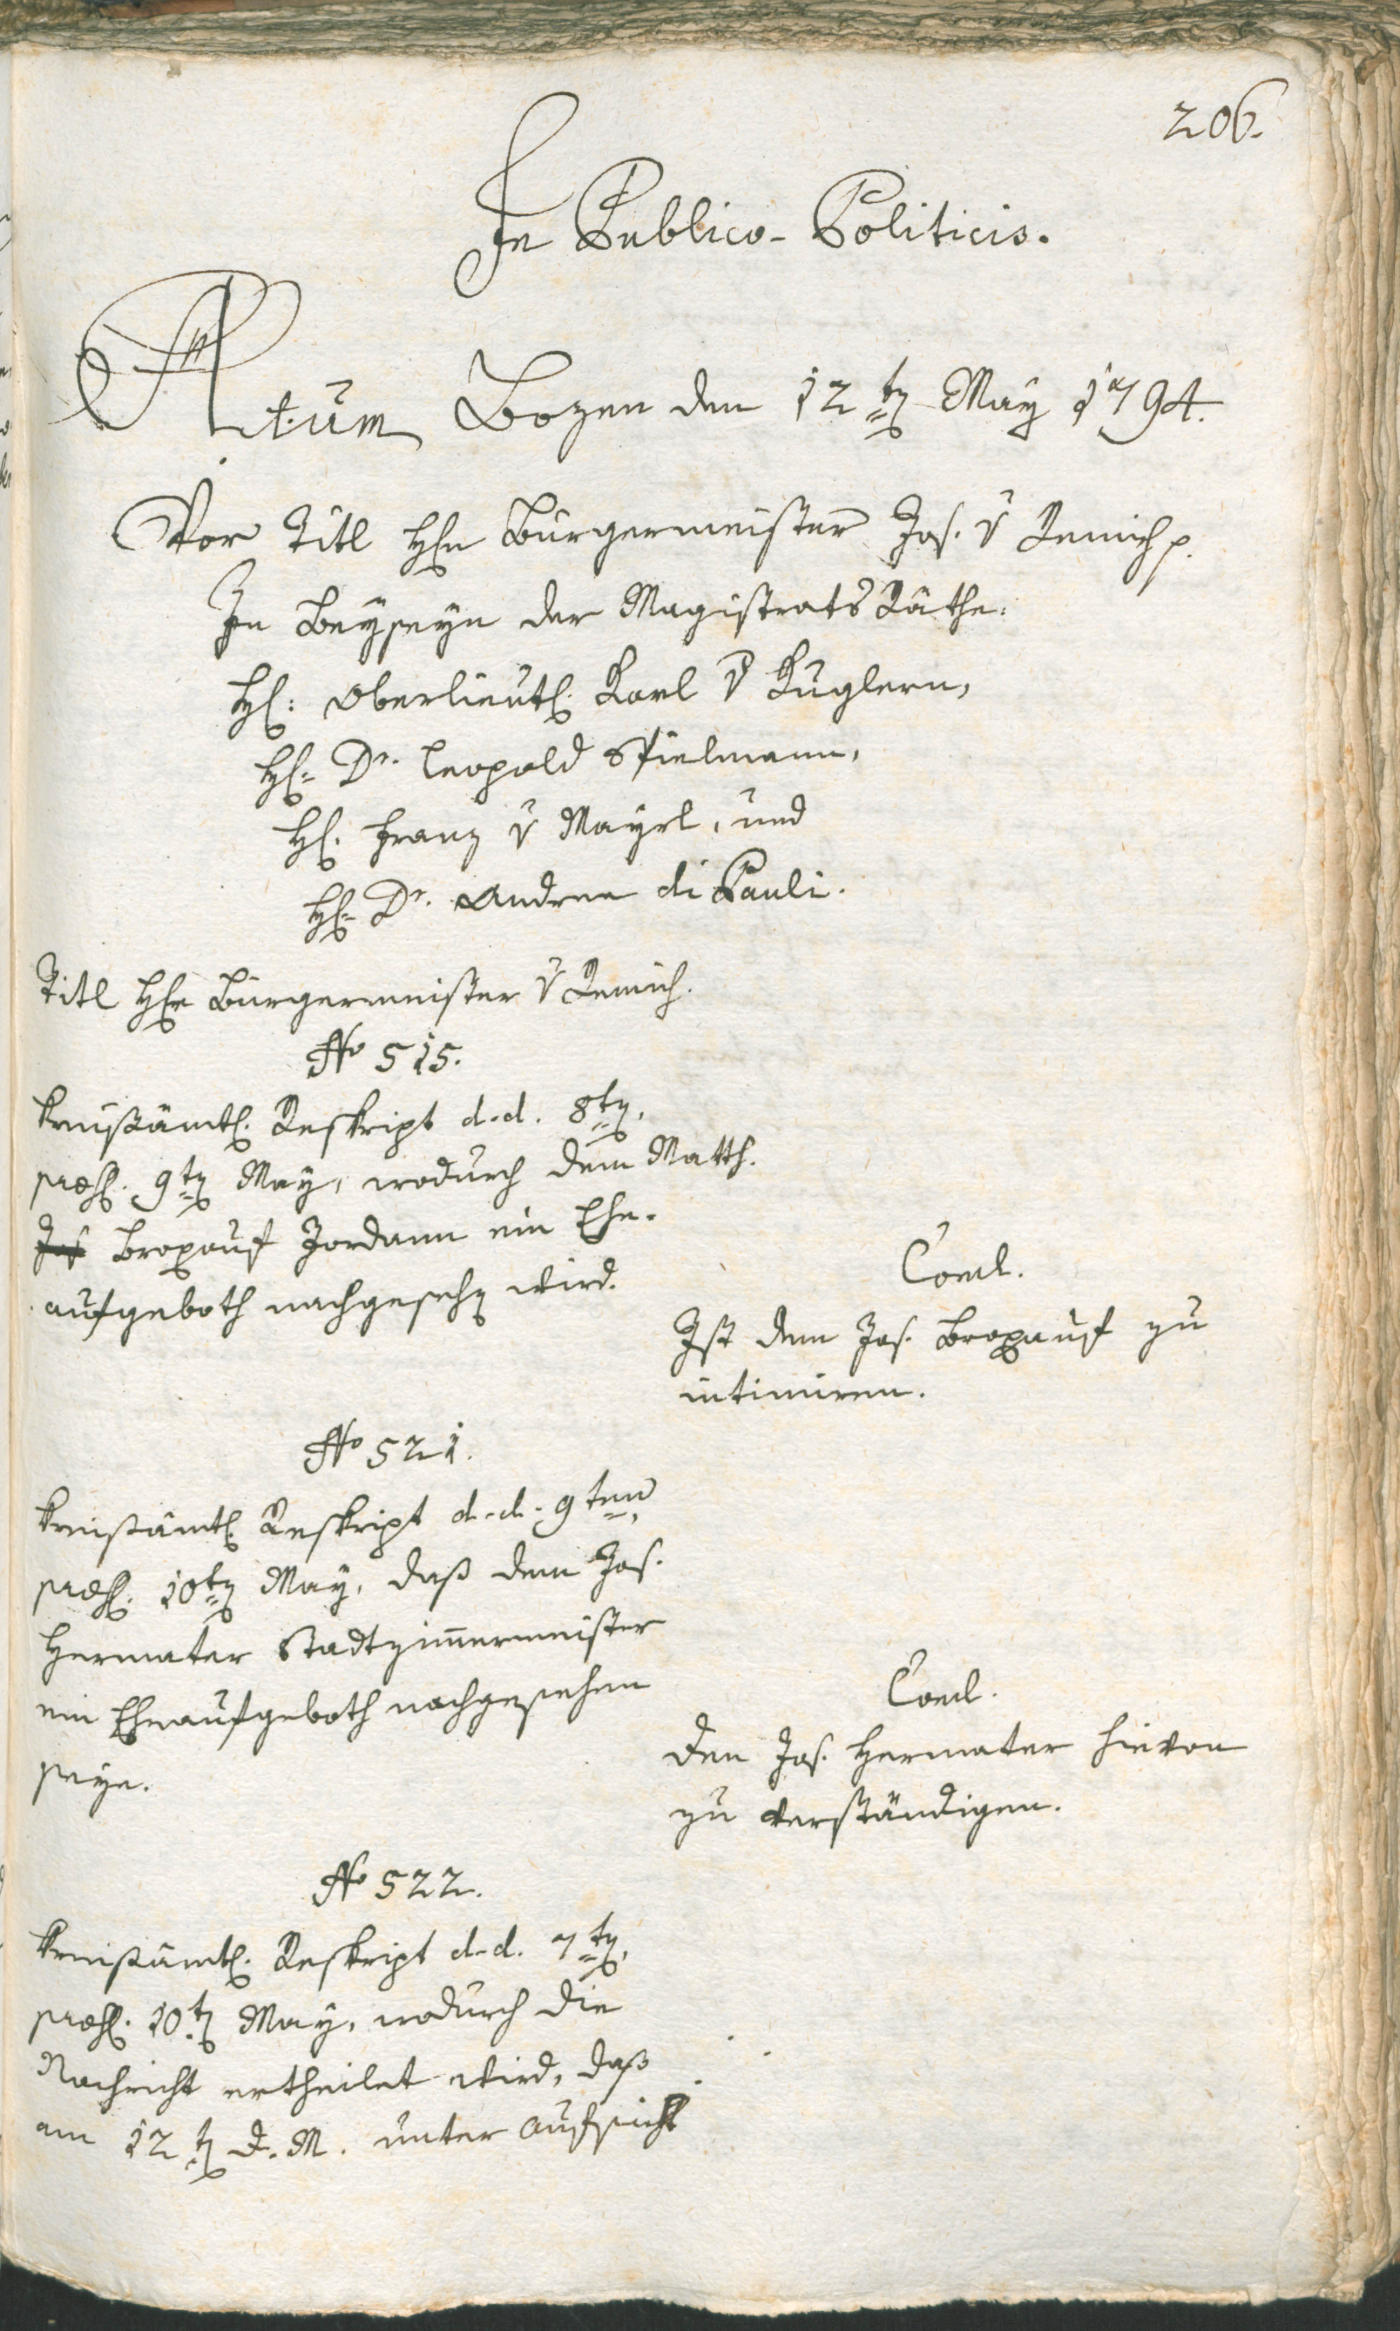 206.
In Publico-Politicis.
Actum Bozen den 12tn May 1794.
Vor Titl Hrn Bürgermeister Jos. v Remich p.
In Beyseyn der Magistrats Räthe.
H: Oberlieut. Karl v Kuglern,
H: Dr. Leopold Spielmann,
H. Franz v Mayrl, und
H: Dr. Andree di Pauli.
Titl Hrn Bürgermeister v Remich.
No 515.
Kreißämtl. Reskript d.d. 8tn,
praes. 9tn May, wodurch dem Matth.
Jos Broxauf Jordann ein Ehe-
aufgeboth nachgesehn wird.
Concl.
Ist dem Jos. Broxauf zu
intimiren.
No 521.
Kreißämtl. Reskript d.d. 9ten,
praes. 10tn May, daß dem Jos.
Hermater Stadtzim̄ermeister
ein Eheaufgeboth nachgesehen
seye.
Concl.
Den Jos. Hermater hievon
zu verständigen.
No 522.
Kreißämtl. Reskript d.d. 7tn,
praes. 10tn May, wodurch die
Nachricht ertheilet wird, daß
am 12tn d. M. unter Aufsicht